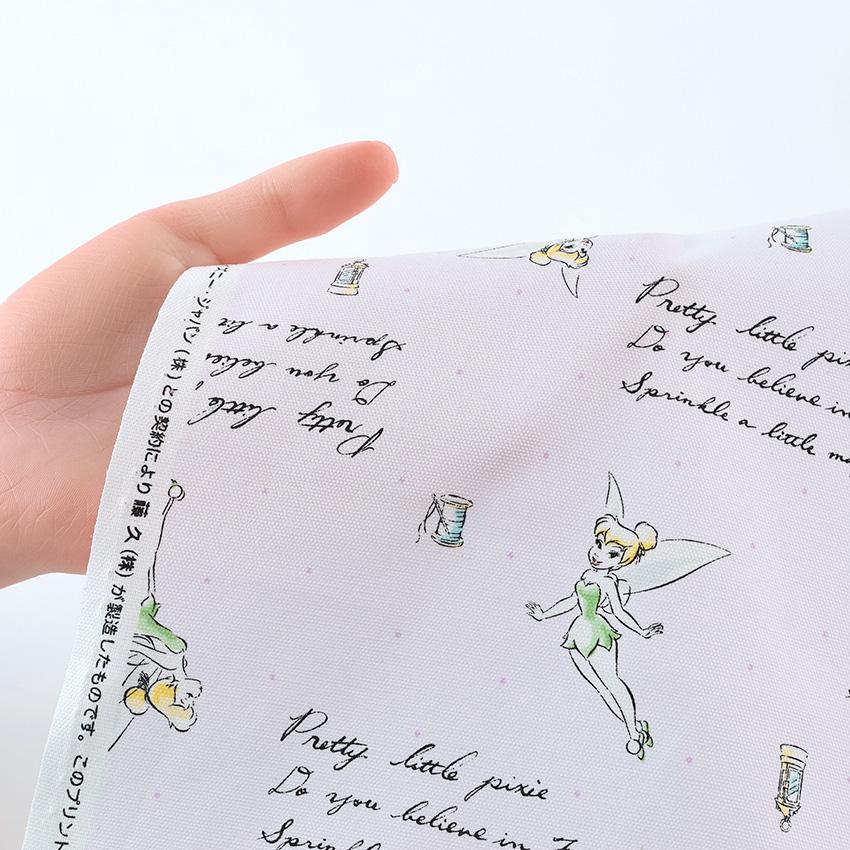 ニー ジャパン (株) との契約により 藤 久 (株) が製造したものです。このプリント
Sprinkle a
Do you
Pretty little
Pretty little
Do you believe in
Sprinkle a little
Pretty little pixie
Do you believe in